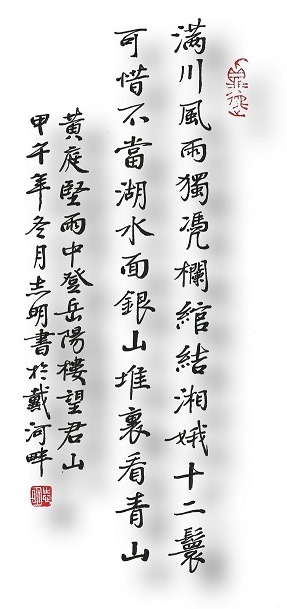 满川風雨獨凭欄綰結湘娥十二鬟
可惜不當湖水面銀山堆裏看青山
黃庭堅雨中登岳陽樓望君山
甲午年冬月志明書於戴河畔